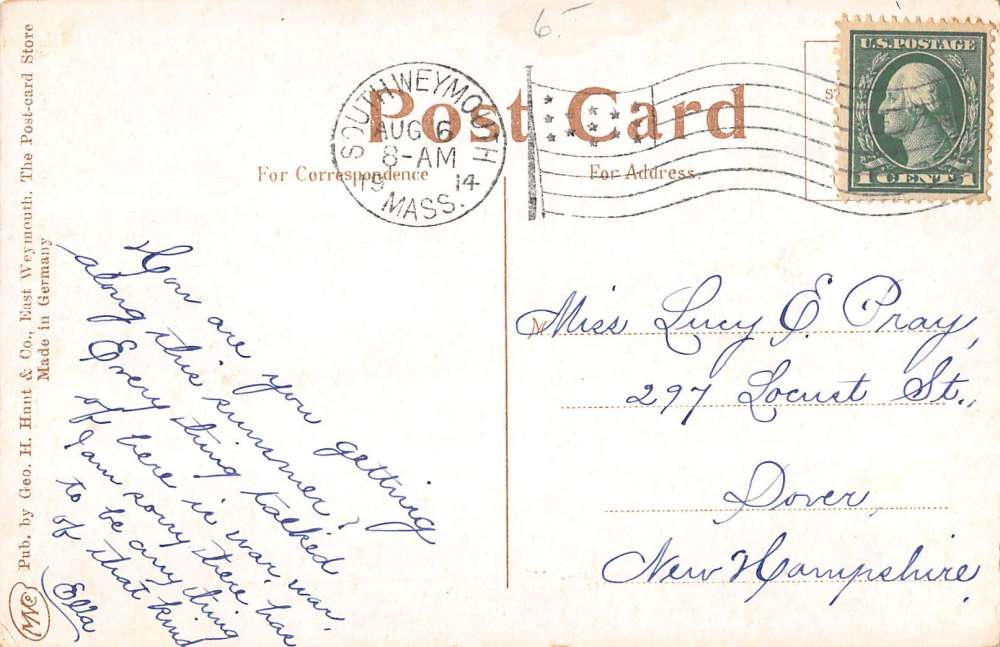 6.-
Post Card
For Correspondence
For Address.
SOUTH WEYMOUTH
AUG 6
8-AM
1914
MASS.
U.S.POSTAGE
1 CENT 1
Pub. by Geo. H. Hunt & Co., East Weymouth. The Post-card Store
Made in Germany
How are you getting
along this summer?
Every thing talked
of here is war, war.
I am sorry there has
to be any thing
of that kind
Ella
Miss Lucy E. Pray,
297 Locust St.,
Dover,
New Hampshire.